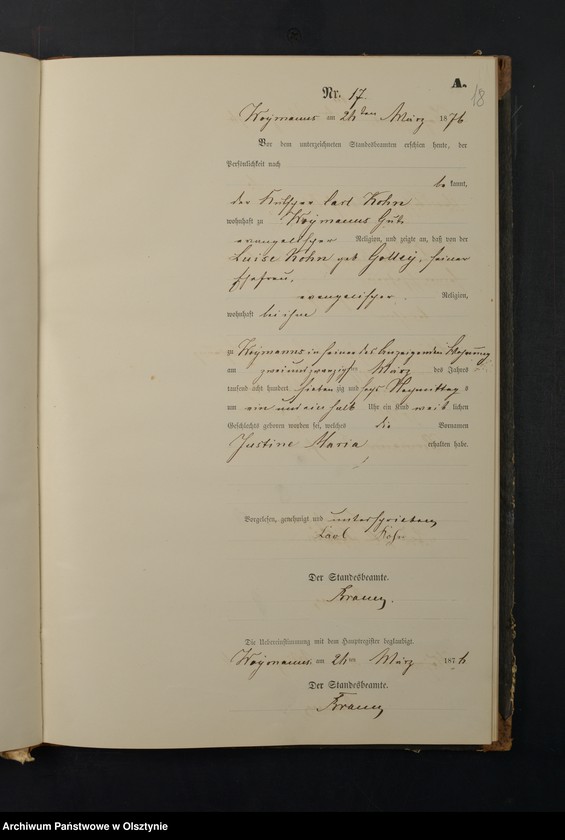 A.
18
Nr. 17.
Woymanns am 24 ten März 1876
Vor dem unterzeichneten Standesbeamten erschien heute, der
Persönlichkeit nach
be kannt,
der Kutscher Carl Kohn
wohnhaft zu Woymanns Guts
evangelischer Religion, und zeigte an, daß von der
Luise Kohn geb seiner
Ehefrau,
evangelischer Religion,
wohnhaft bei ihm
zu Woymanns in seiner des Anzeigenden Wohnung
am zweiundzwanzigsten März des Jahres
tausend acht hundert sieben zig und sechs Nachmittag s
um ein und ein halb Uhr ein Kind weib lichen
Geschlechts geboren worden sei, welches die Vornamen
Justine Maria erhalten habe.
Vorgelesen, genehmigt und unterschrieben
Carl Kohn
Der Standesbeamte.
Die Uebereinstimmung mit dem Hauptregister beglaubigt.
Woymanns am 24 ten März 1876
Der Standesbeamte.
Archiwum Państwowe w Olsztynie